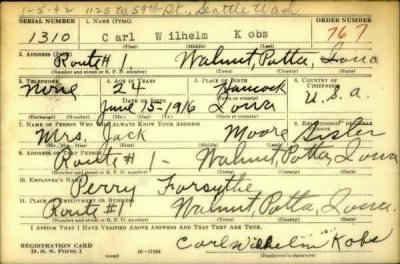 1-5-42 1125 N. 59th St., Seattle Wash
SERIAL NUMBER 1. NAME (Print) ORDER NUMBER
1310 Carl Wilhelm Kobs 767
(First) (Middle) (Last)
2. ADDRESS (Print)
Route # 1. Walnut, Potta, Iowa
(Number and street or R. F. D. number) (Town) (County) (State)
3. TELEPHONE 4. AGE IN YEARS 5. PLACE OF BIRTH 6. COUNTRY OF CITIZENSHIP
None 24 Hancock
DATE OF BIRTH
June 15-1916 Iowa U.S.a.
7. NAME OF PERSON WHO WILL ALWAYS KNOW YOUR ADDRESS 8. RELATIONSHIP OF THAT PERSON
Mrs. Jack Moore Sister
(Mr., Mrs., Miss) (First) (Middle) (Last)
9. ADDRESS OF THAT PERSON
Route # 1 - Walnut, Potta, Iowa
(Number and street or R. F. D. number) (Town) (County) (State)
10. EMPLOYER'S NAME
Perry Forsythe
11. PLACE OF EMPLOYMENT OR BUSINESS
Route # 1 Walnut, Potta, Iowa.
(Number and street or R. F. D. number) (Town) (County) (State)
I AFFIRM THAT I HAVE VERIFIED ABOVE ANSWERS AND THAT THEY ARE TRUE.
REGISTRATION CARD
D. S. S. Form 1
Carl Wilhelm Kobs
(Registrant's signature)